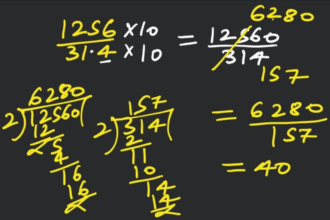 6280
1256 ×10 = 12560
31.4 ×10 314
157
6280 157
2)12560( 2)314( = 6280
12 2 157
25 11
4 10 = 40
16 14
16 14
2 2